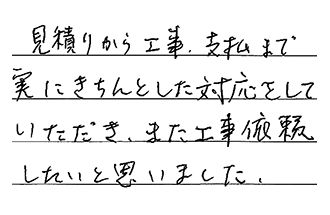 見積りから工事、支払まで
実にきちんとした対応をして
いただき、また工事依頼
したいと思いました。